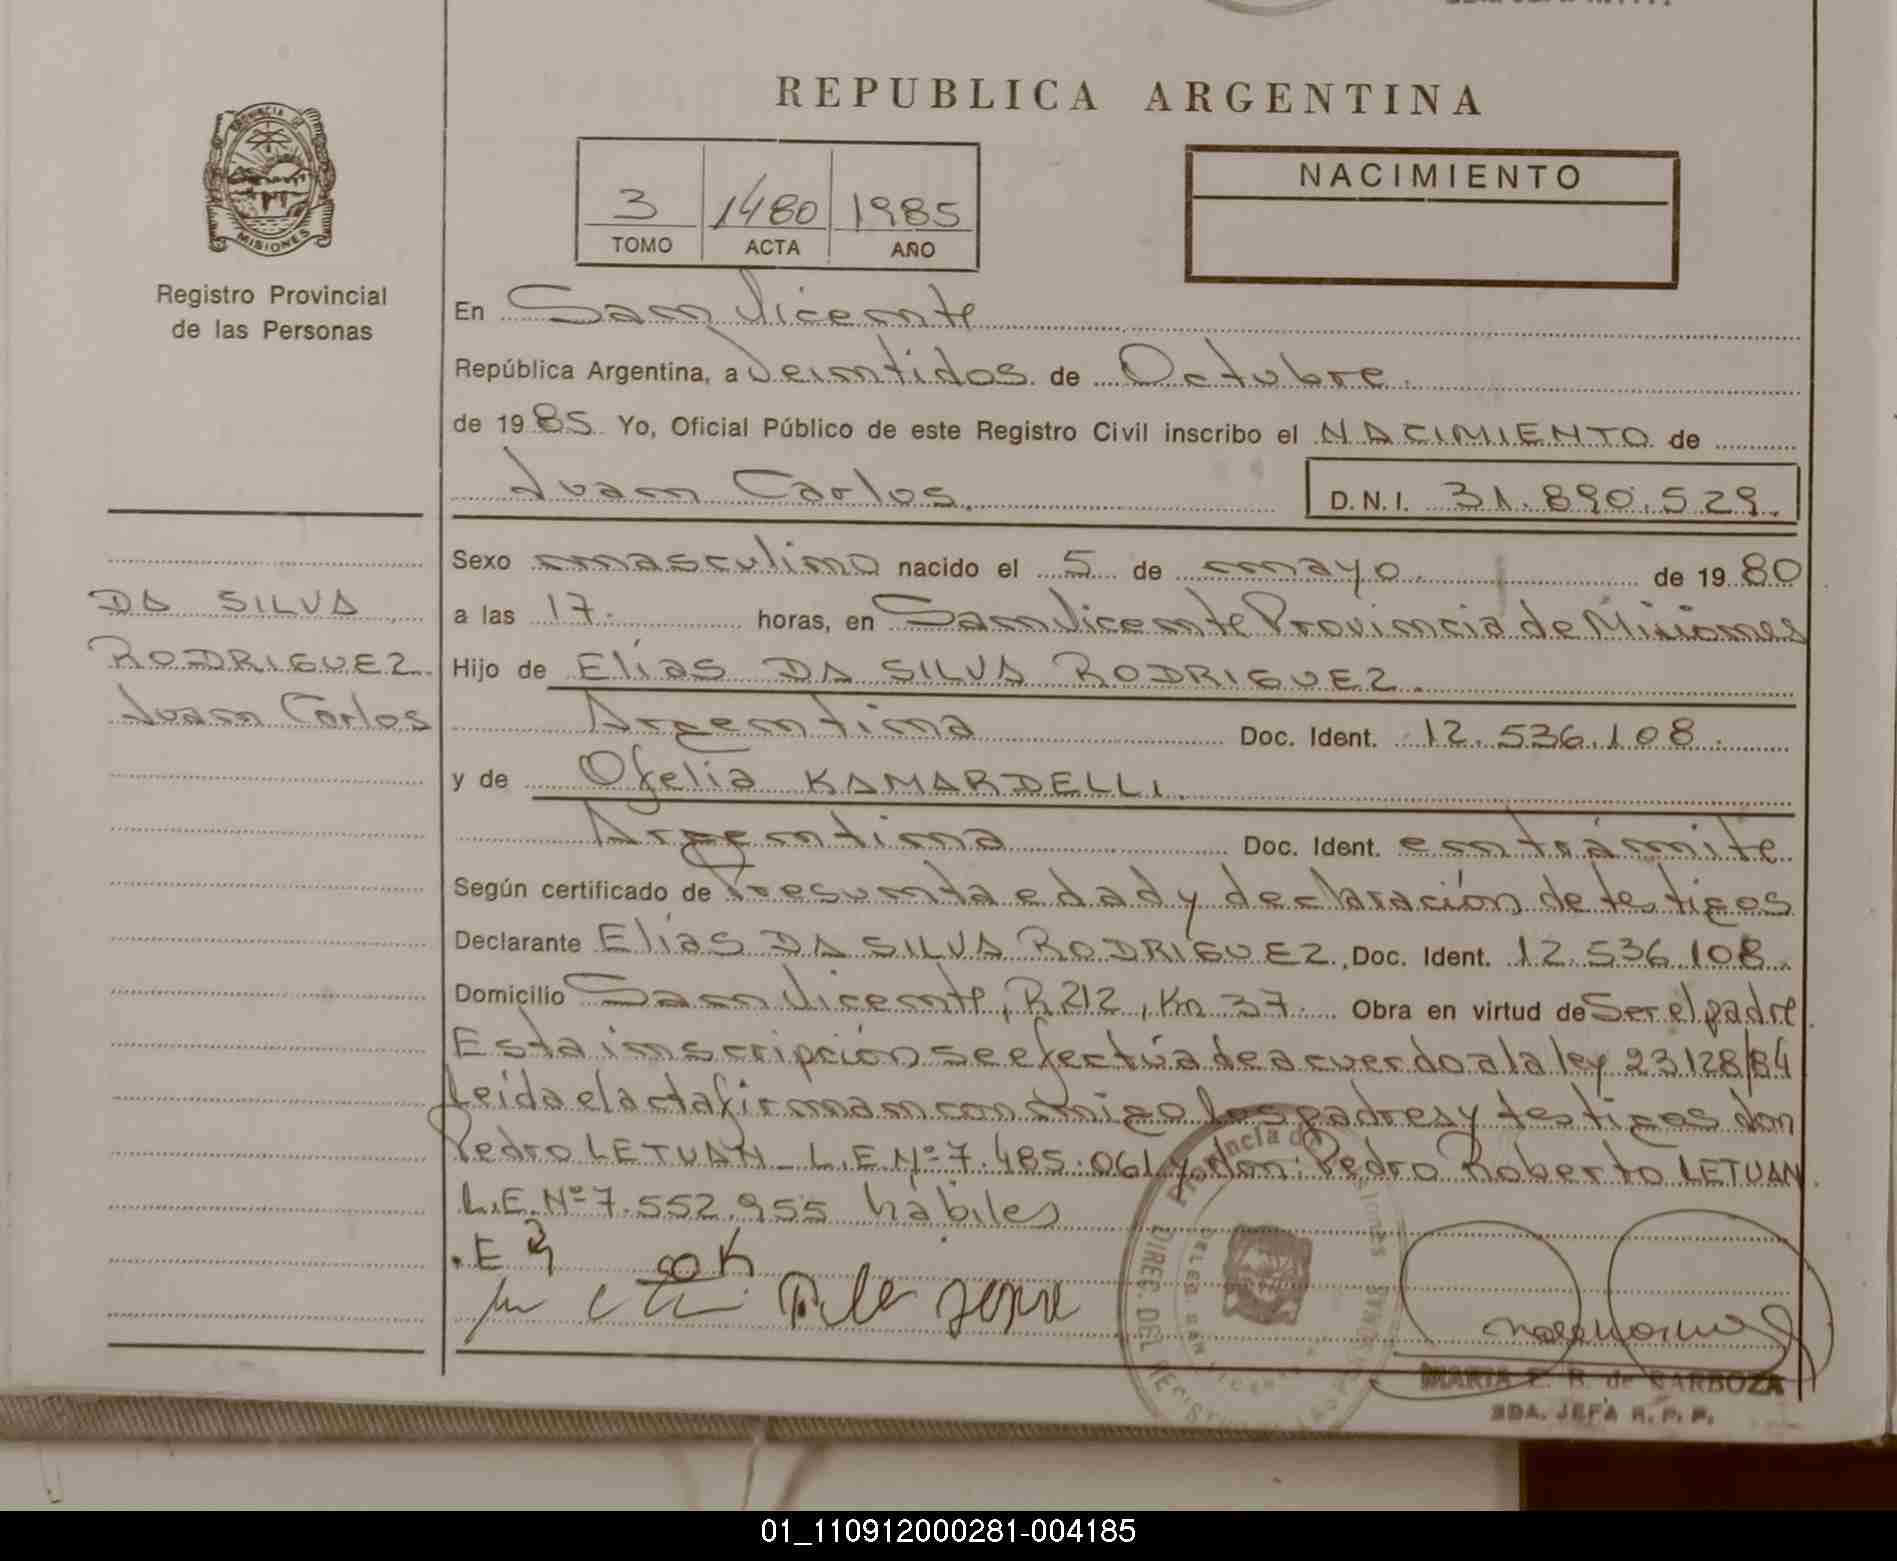 REPUBLICA ARGENTINA
PROVINCIA DE
MISIONES
Registro Provincial
de las Personas
3 1480 1985
TOMO ACTA AÑO
NACIMIENTO
En San Vicente
República Argentina, a Veintidos de Octubre
de 1985 Yo, Oficial Público de este Registro Civil inscribo el NACIMIENTO de
Juan Carlos. D.N.I. 31.890.529.
Sexo masculino nacido el 5 de mayo de 1980
a las 17 horas, en San Vicente Provincia de Misiones
Hijo de Elías DA SILVA RODRIGUEZ.
Argentina Doc. Ident. 12.536.108.
y de Ofelia KAMARDELLI.
Argentina Doc. Ident. en trámite.
Según certificado de Presunta edad y declaración de testigos
Declarante Elías DA SILVA RODRIGUEZ, Doc. Ident. 12.536.108.
Domicilio San Vicente, R 212, Km 37. Obra en virtud de Ser el padre
Esta inscripción se efectúa de acuerdo a la ley 23.128/84
Leída el acta firman conmigo los padres y testigos don
Pedro LETUAN - L.E.Nº 7.485.061 y don: Pedro Roberto LETUAN
L.E.Nº 7.552.955 hábiles
DA SILVA
RODRIGUEZ
Juan Carlos
Provincia de Misiones
DIREC. DEL REGISTRO
MARIA E. B. de BARBOZA
JEFA R. P. P.
01_110912000281-004185